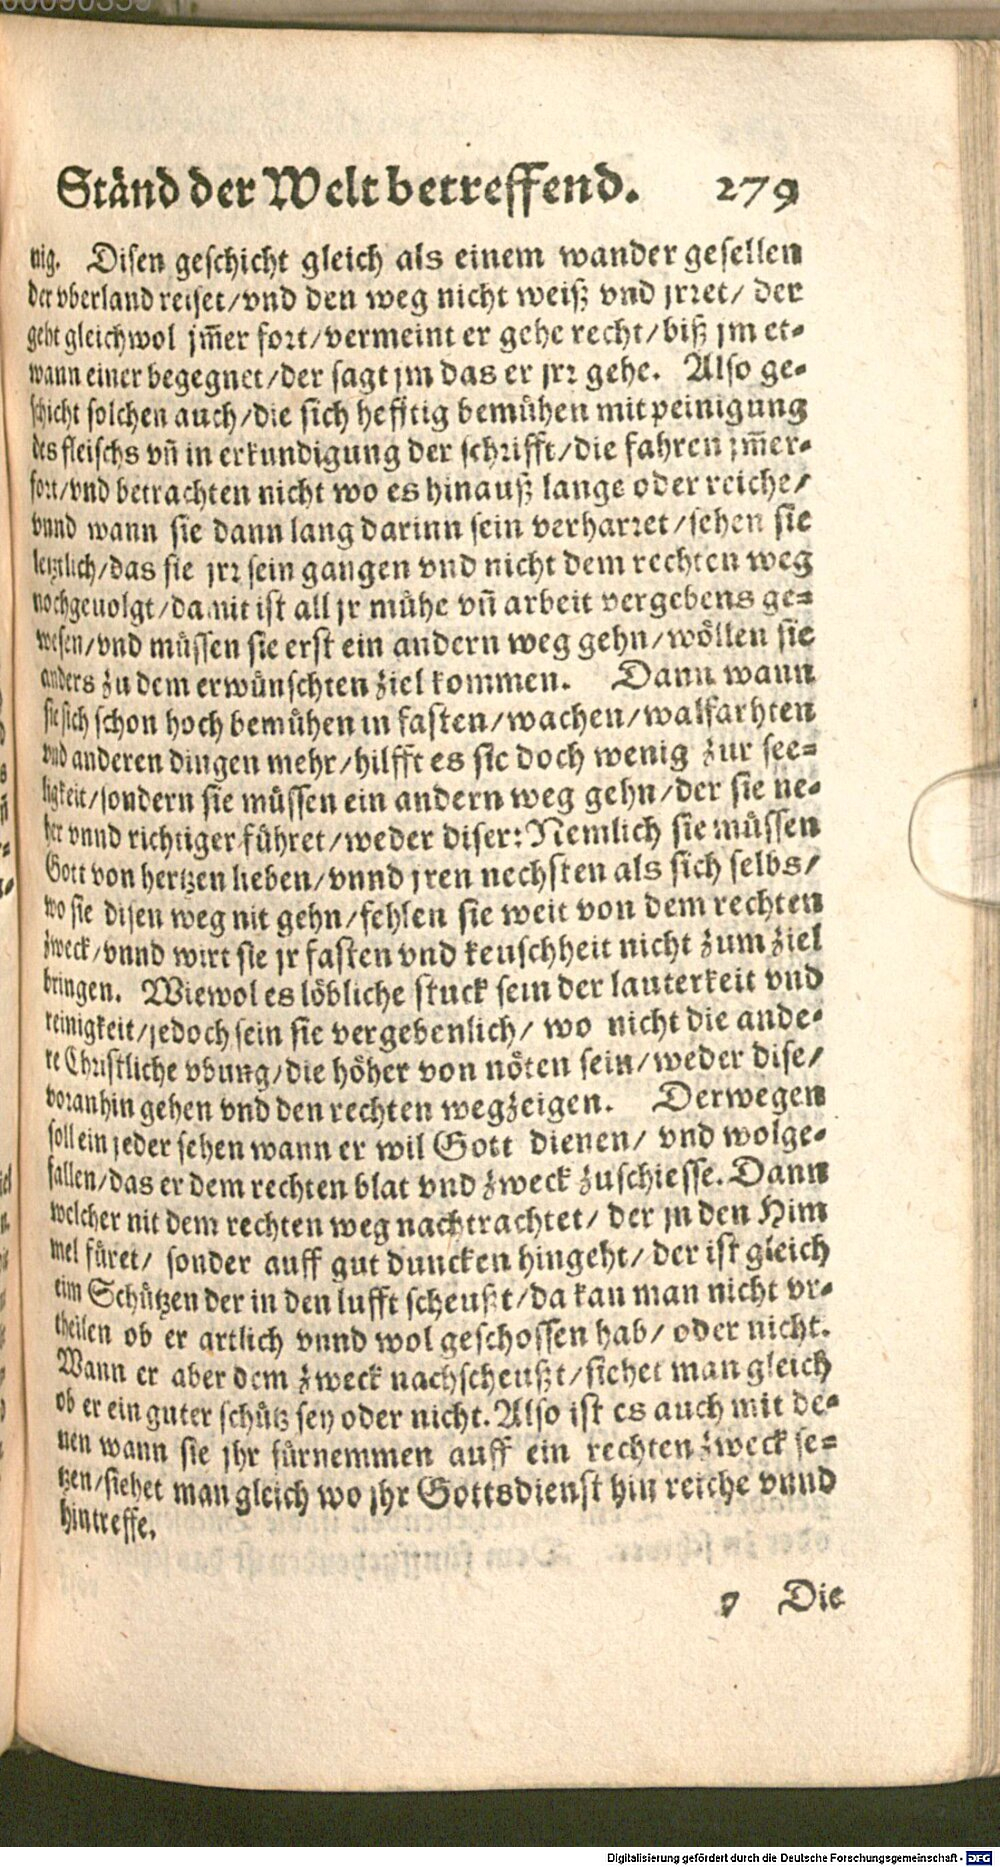 Ständ der Welt betreffend. 279
nig. Disen geschicht gleich als einem wander gesellen
der vberland reiset/vnd den weg nicht weiß vnd jrret/ der
geht gleichwol jm̃er fort/vermeint er gehe recht/biß jm et-
wann einer begegnet/der sagt jm das er jrr gehe. Also ge-
schicht solchen auch/die sich hefftig bemühen mit peinigung
des fleischs vñ in erkundigung der schrifft/die fahren jm̃er-
fort/vnd betrachten nicht wo es hinauß lange oder reiche/
vnnd wann sie dann lang darinn sein verharret/sehen sie
letzlich/das sie jrr sein gangen vnd nicht dem rechten weg
nochgeuolgt/damit ist all jr mühe vñ arbeit vergebens ge-
wesen/vnd müssen sie erst ein andern weg gehn/wöllen sie
anders zu dem erwünschten ziel kommen. Dann wann
sie sich schon hoch bemühen in fasten/wachen/walfarhten
vnd anderen dingen mehr/hilfft es sie doch wenig zur see-
ligkeit/sondern sie müssen ein andern weg gehn/der sie ne-
her vnnd richtiger führet/weder diser: Nemlich sie müssen
Gott von hertzen lieben/vnnd jren nechsten als sich selbs/
wo sie disen weg nit gehn/fehlen sie weit von dem rechten
zweck/vnnd wirt sie jr fasten vnd keuschheit nicht zum ziel
bringen. Wiewol es löbliche stuck sein der lauterkeit vnd
reinigkeit/jedoch sein sie vergebenlich/ wo nicht die ande-
re Christliche vbung/die höher von nöten sein/weder dise/
voranhin gehen vnd den rechten weg zeigen. Derwegen
soll ein jeder sehen wann er wil Gott dienen/ vnd wolge-
fallen/das er dem rechten blat vnd zweck zuschiesse. Dann
welcher nit dem rechten weg nachtrachtet/ der jn den Him
mel füret/ sonder auff gut duncken hingeht/der ist gleich
eim Schützen der in den lufft scheußt/da kan man nicht vr-
theilen ob er artlich vnnd wol geschossen hab/ oder nicht.
Wann er aber dem zweck nachscheußt/sihet man gleich
ob er ein guter schütz sey oder nicht. Also ist es auch mit de-
nen wann sie jhr fürnemmen auff ein rechten zweck se-
tzen/siehet man gleich wo jhr Gottsdienst hin reiche vnnd
hintreffe.
Die
Digitalisierung gefördert durch die Deutsche Forschungsgemeinschaft - DFG